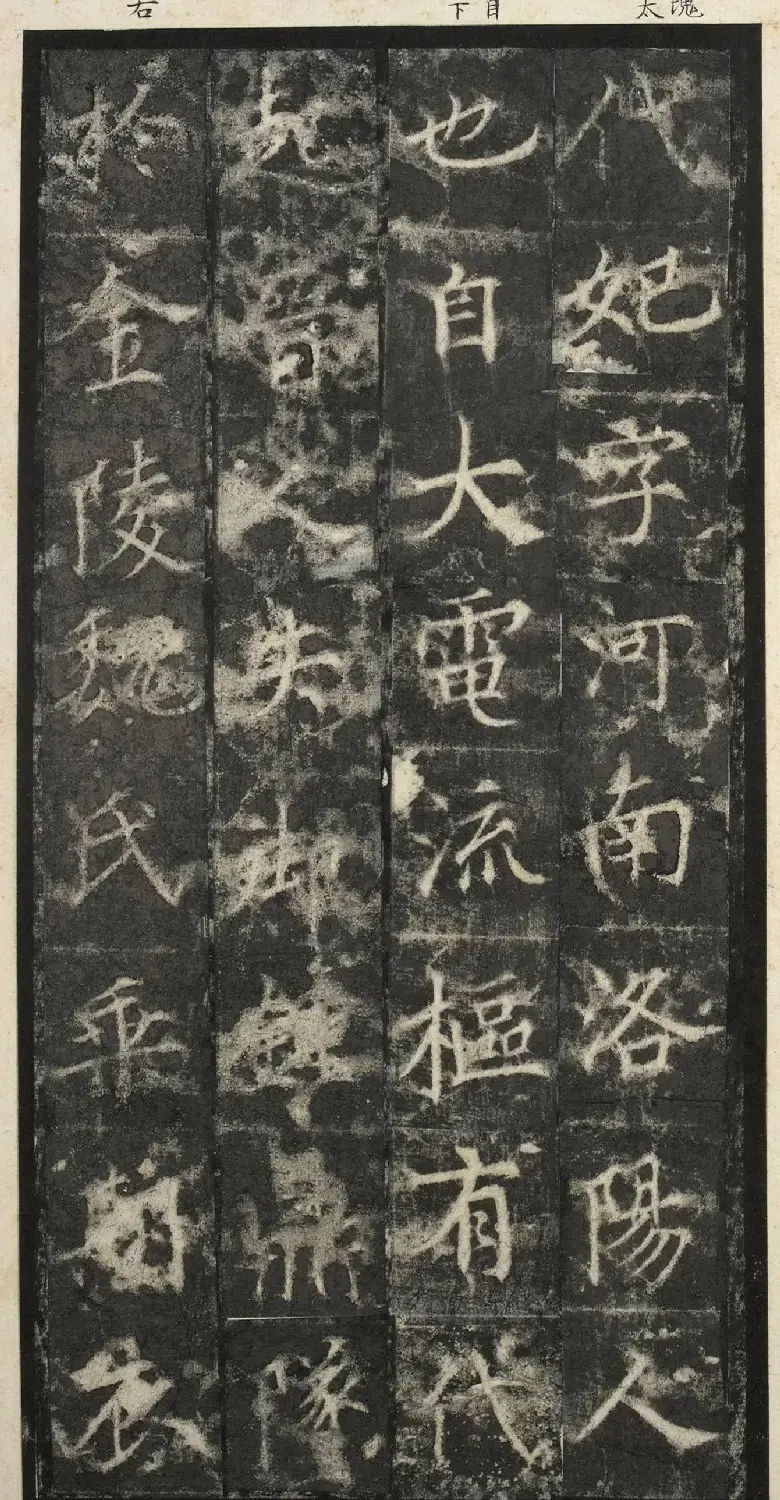 塊太
目下
右
代妃字河南洛陽人
也自大電流樞有代
起晉人失御鐘鼎隊
於金陵魏氏乘朝衣